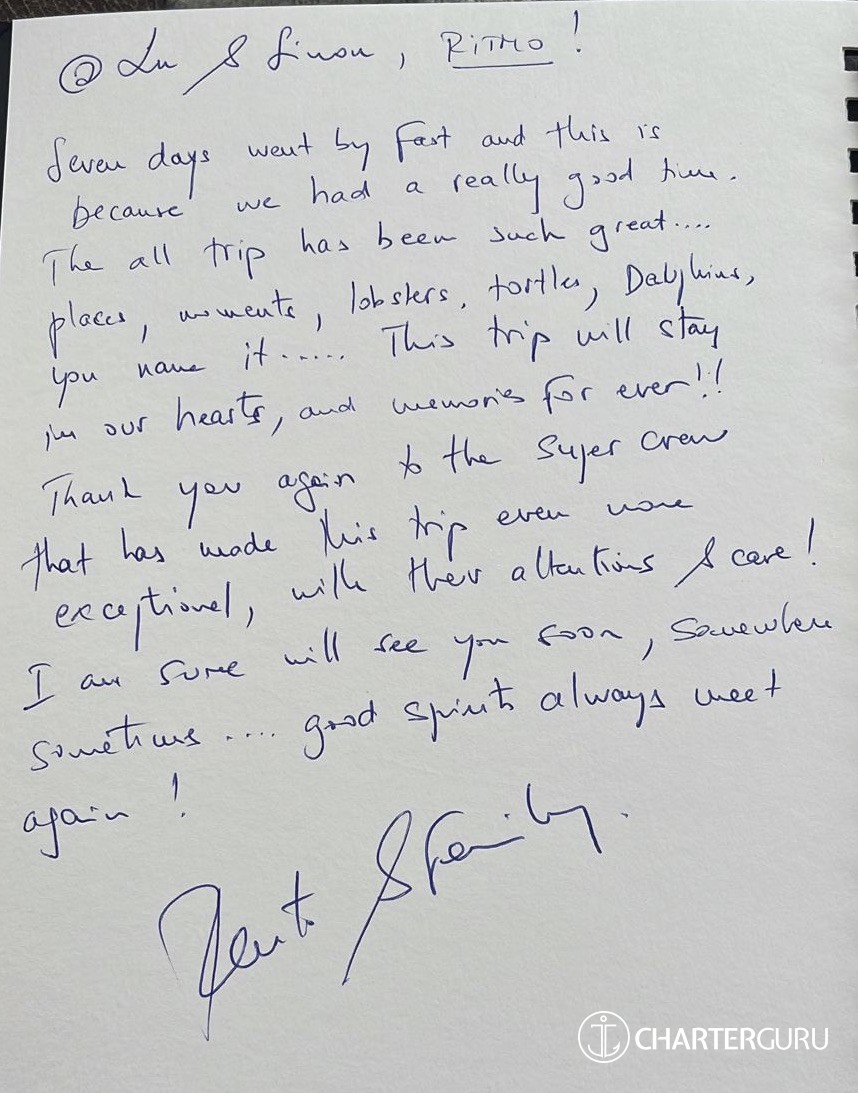 @ Lu & Simon, RiTMO!
Seven days went by fast and this is
because we had a really good time.
The all trip has been such great....
places, moments, lobsters, tortles, Dalphins,
you name it...... This trip will stay
in our hearts, and memories for ever!!
Thank you again to the super crew
that has made this trip even more
exceptional, with ther attentions & care!
I am sure will see you soon, somewhere
sometimes .... good spirits always meet
again!
& Family.
CHARTERGURU